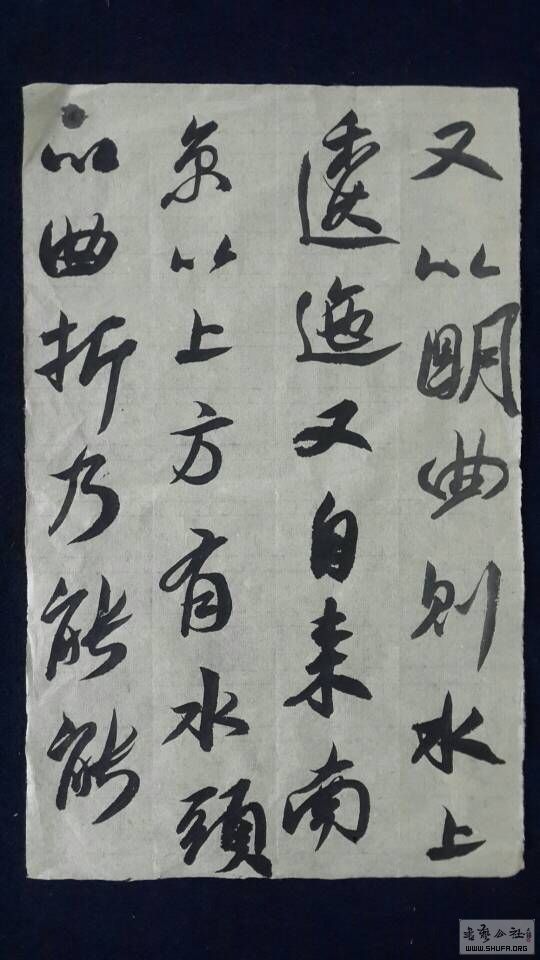 又以明曲則水上
逶迤又自来南
京以上方有水頭
以曲折乃能能
WWW.SHUFA.ORG